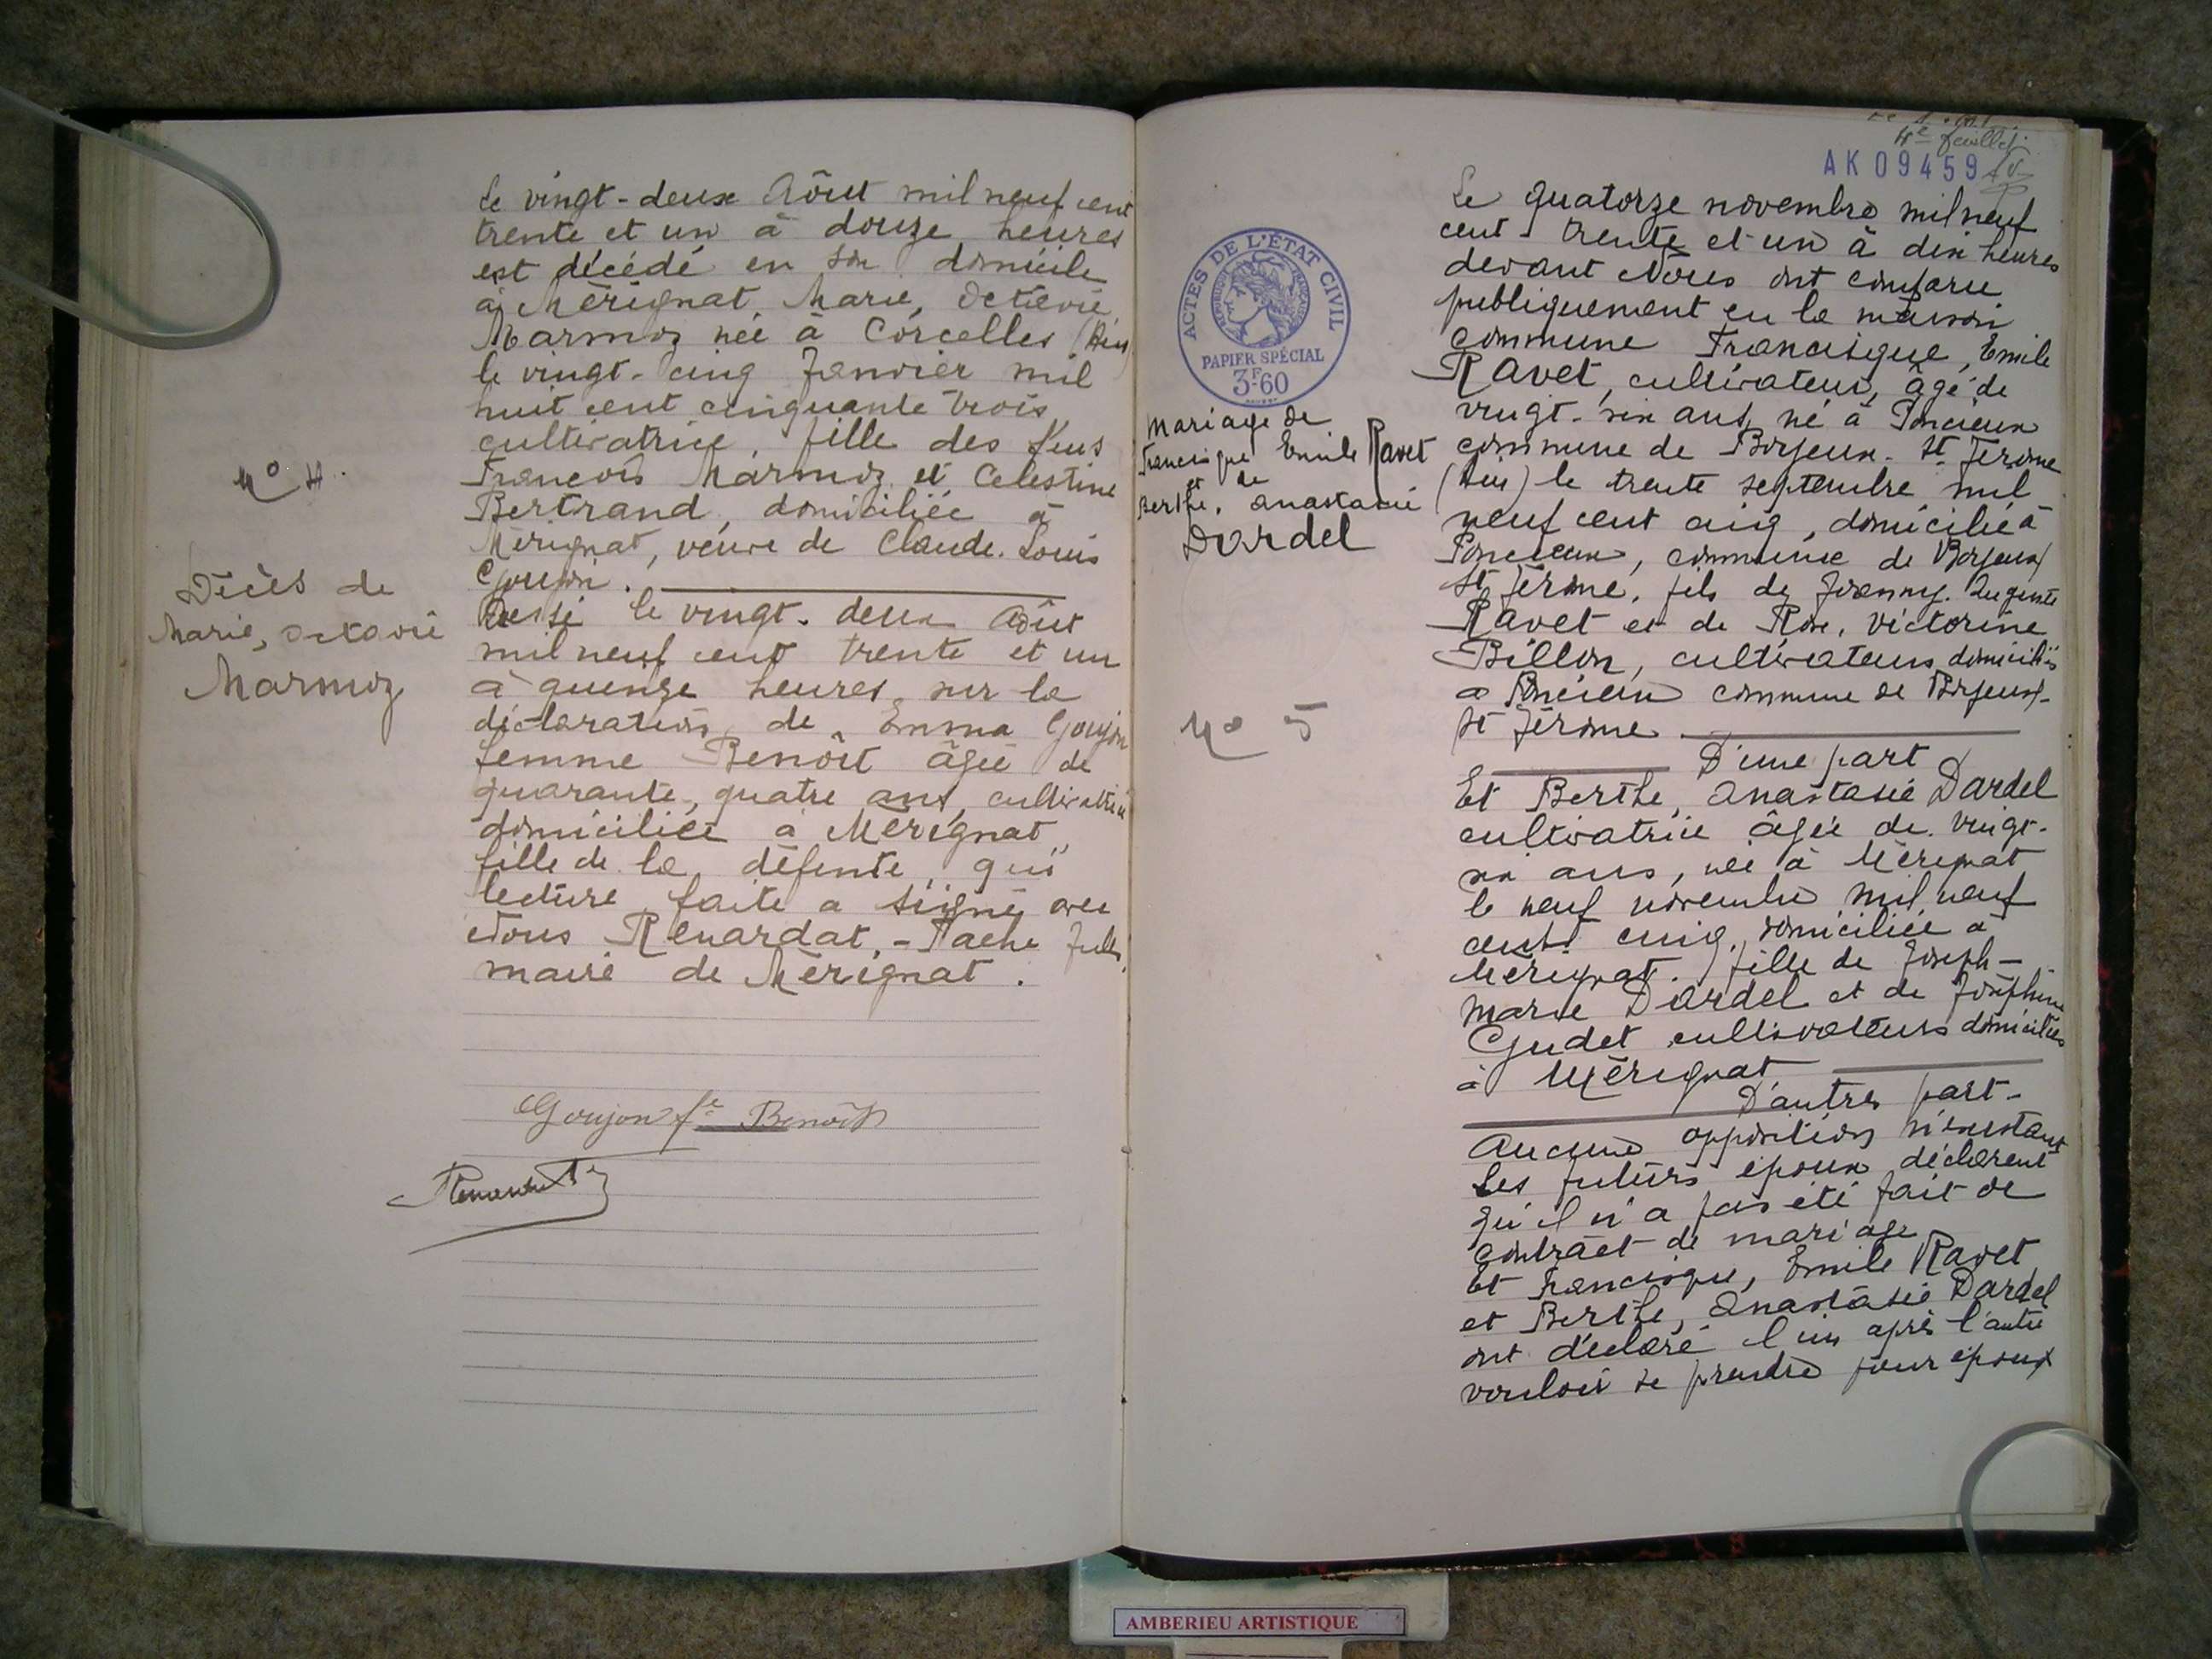 Le vingt-deux Aôut mil neuf cent
trente et un à douze heures
est décédé en son domicile
à Mérignat Marie, Octavie
Marmoz née à Corcelles (Ain)
le vingt-cinq Janvier mil
huit cent cinquante trois
cultivatrice, fille des feus
François Marmoz et Celestine
Bertrand, domiciliée à
Mérignat, veuve de Claude. Louis
Goujon.
Dressé le vingt-deux Aôut
mil neuf cent trente et un
à quinze heures, sur la
déclaration de Emma Goujon
femme Benoît âgée de
quarante, quatre ans, cultivatrice
domiciliée à Mérignat,
fille de la défunte, qui
lecture faite a signé avec
Nous Renardat,-Fache Jules,
maire de Mérignat.
N° 4
Décès de
Marie, octavie
Marmoz
Goujon fe Benoît
4e feuillet
AK 09459
ACTES DE L'ÉTAT CIVIL
RÉPUBLIQUE FRANÇAISE
PAPIER SPÉCIAL
3F.60
Mariage de
Francisque Emile Ravet
et de
Berthe, Anastasie
Dardel
N° 5
Le quatorze novembre mil neuf
cent trente et un à dix heures
devant Nous ont comparu
publiquement en la maison
commune Francisque, Emile
Ravet, cultivateur, âgé de
vingt-six ans, né à Poncieux
commune de Boyeux-St Jérome
(Ain) le trente septembre mil
neuf cent cinq, domicilié à
Poncieux, commune de Boyeux
St Jérôme, fils de Joanny.
Ravet et de Rose, Victorine
Billon, cultivateurs domiciliés
à Poncieux commune de Boyeux-
St Jérome
D'une part
Et Berthe, Anastasie Dardel
cultivatrice âgée de vingt-
six ans, née à Mérignat
le neuf novembre mil neuf
cent cinq, domiciliée à
Mérignat, fille de Joseph-
Marie Dardel et de Joséphine
Gudet cultivateurs domiciliés
à Mérignat
D'autres part-
Aucune opposition n'existant
Les futurs époux déclarent
qu'il n'a pas été fait de
contract de mariage
Et Francisque, Emile Ravet
et Berthe, Anastasie Dardel
ont déclaré l'un après l'autre
vouloir se prendre pour époux
AMBERIEU ARTISTIQUE